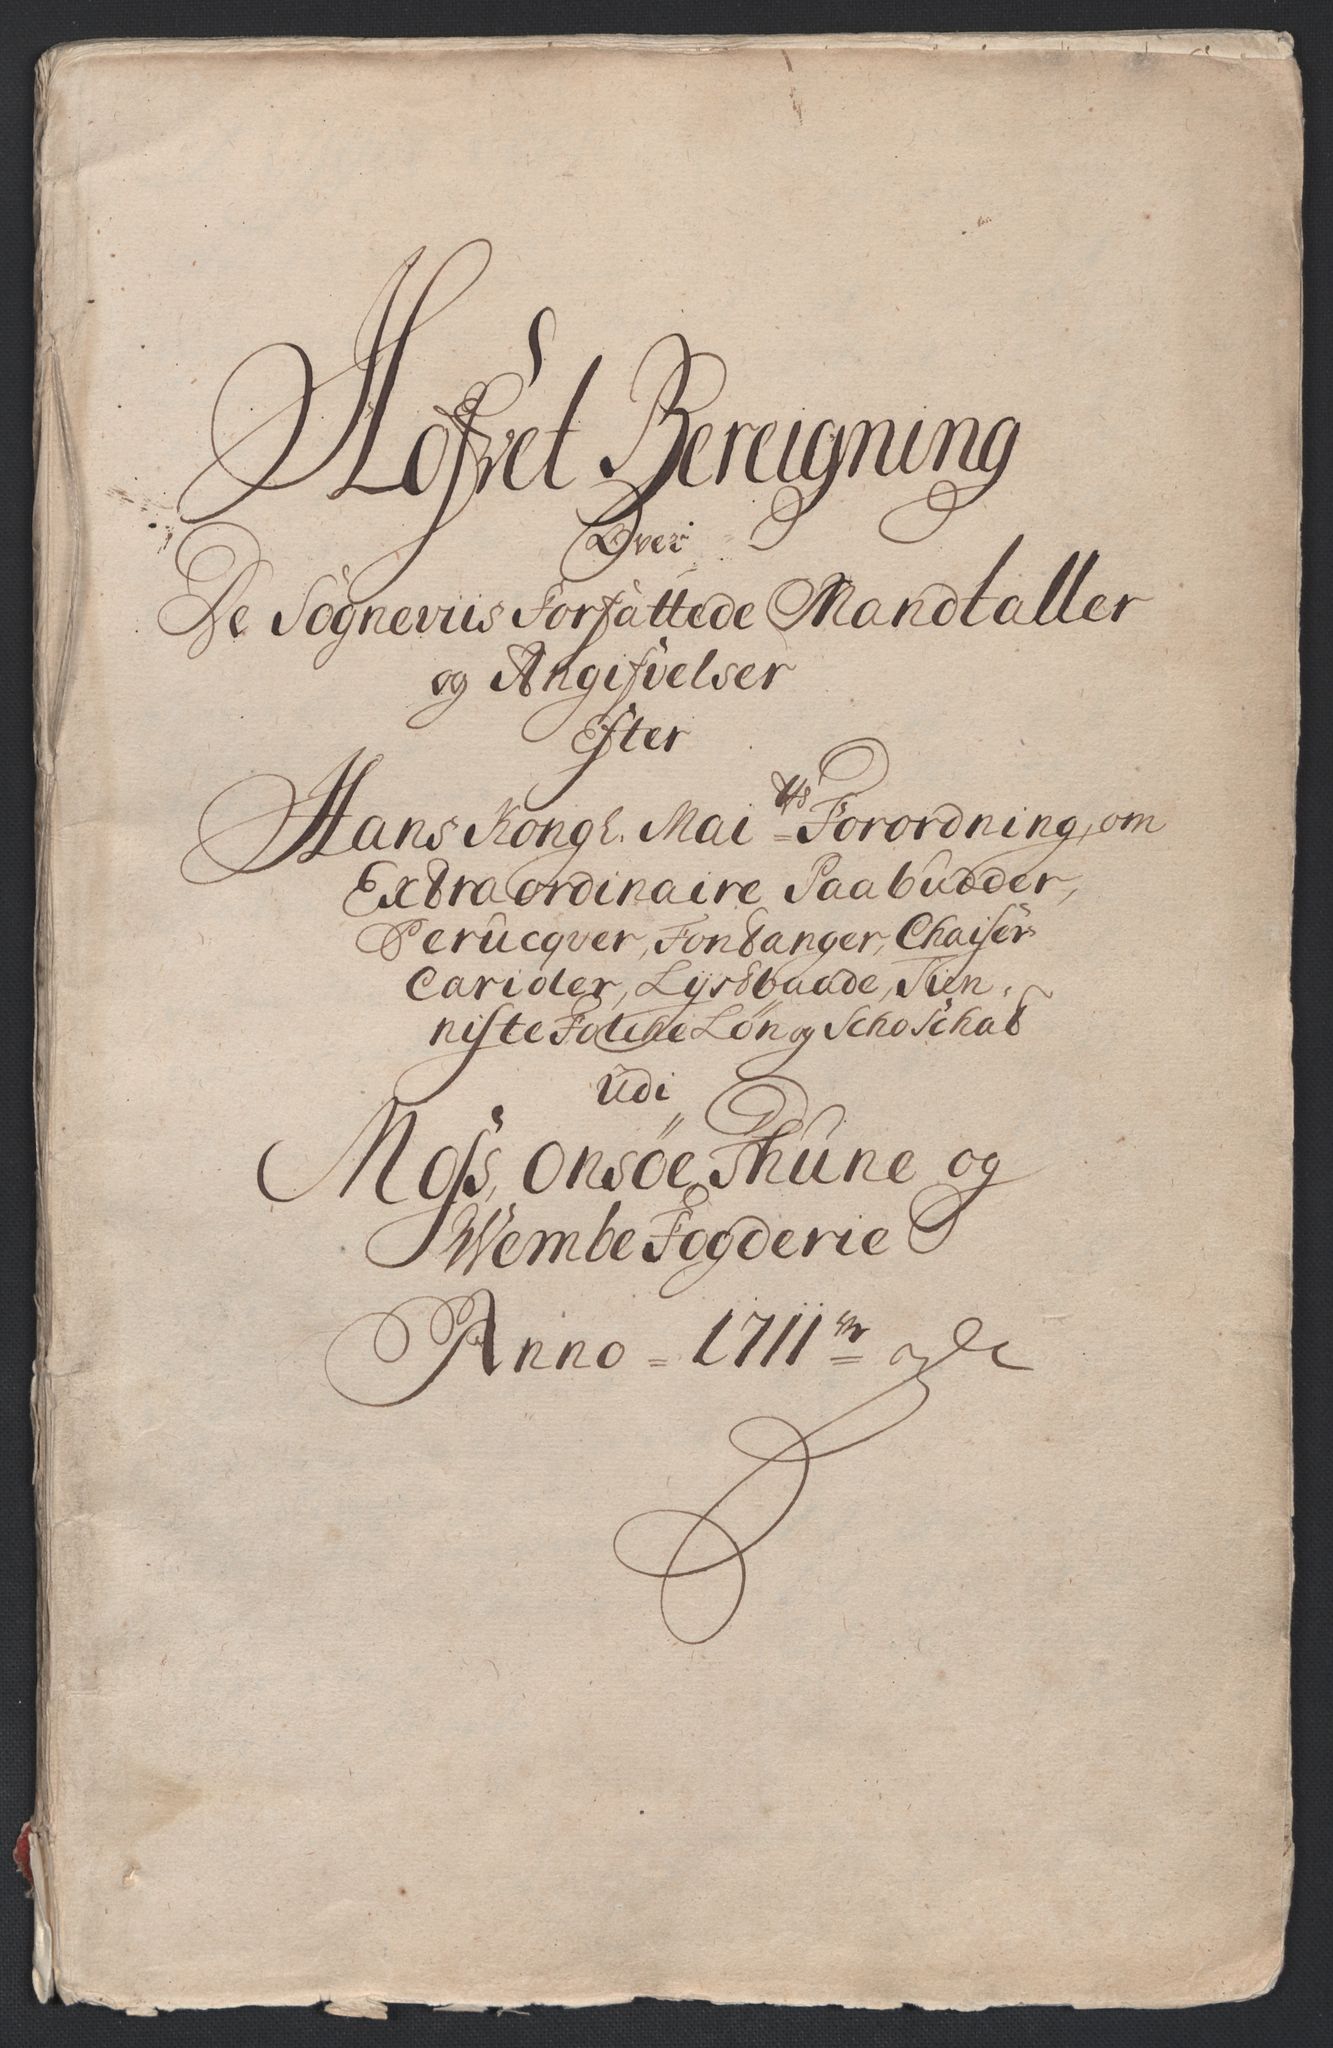 Hofvet Bereigning
Over
De Sogneviis Forfattede Mandtaller
og Angifvelser
Efter
Hans Kongl. Mai ts Forordning, om
Extraordinaire Paabudder,
Perucqver, Fontanger, Chaiser
Carioler, Lystbaade, Tien
niste Folche Løn og Scho Schat
udi
Moss, Onsöe, Thune og
Wembe Fogderie
Anno = 1711